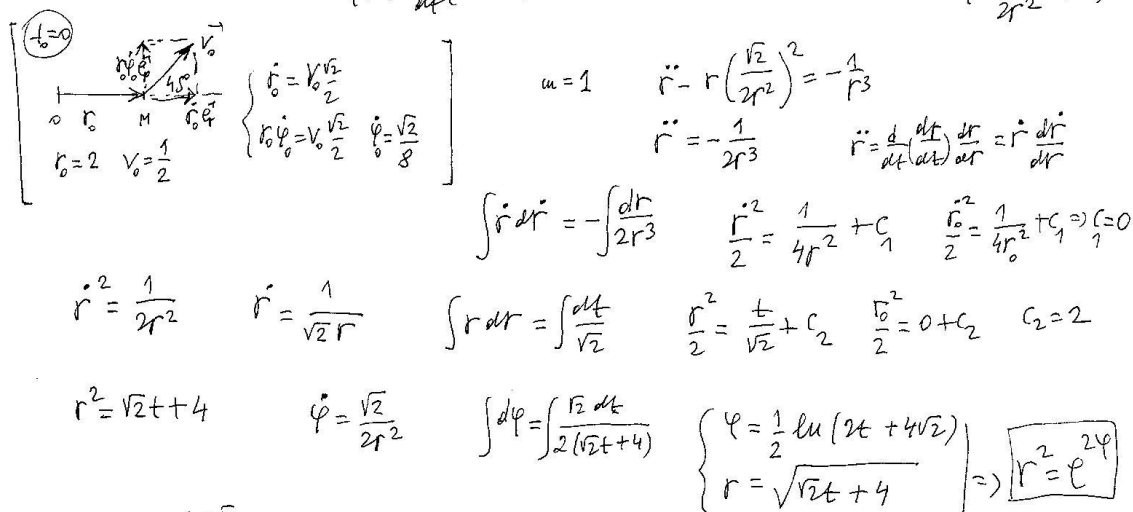 2r²
t₀=0
V₀
r₀φ̇₀e⃗φ
45°
0 r₀ M ṙ₀e⃗r
r₀=2 V₀=1/2
{ ṙ₀=V₀ √2/2
r₀φ̇₀=V₀ √2/2 φ̇₀=√2/8
m=1 r̈ - r(√2/2r²)² = -1/r³
r̈ = -1/2r³ r̈ = d/dt(dr/dt) dr/dr = ṙ dṙ/dr
∫ṙdṙ = -∫dr/2r³ ṙ²/2 = 1/4r² + C₁ ṙ₀²/2 = 1/4r₀² + C₁ => C₁=0
ṙ² = 1/2r² ṙ = 1/√2 r ∫rdr = ∫dt/√2 r²/2 = t/√2 + C₂ r₀²/2 = 0+C₂ C₂=2
r² = √2t+4 φ̇ = √2/2r² ∫dφ = ∫√2 dt/2(√2t+4) { φ = 1/2 ln(2t+4√2)
r = √(√2t+4) | => r² = e^2φ